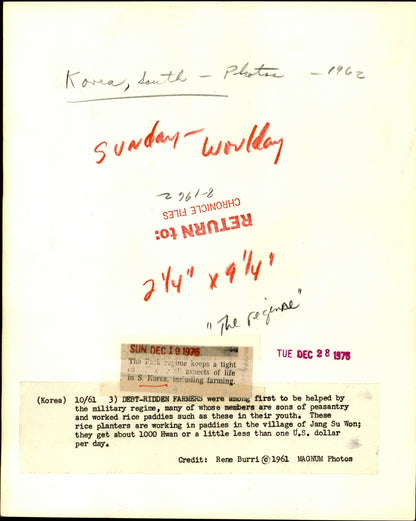 Korea, South - Photos - 1962
SUNDAY - World
8-1962
RETURN to:
CHRONICLE FILES
2 1/4" x 9 1/4"
"The regime"
SUN DEC 19 1976
The Park regime keeps a tight
aspects of life
in S. Korea, including farming.
TUE DEC 28 1976
(Korea) 10/61 3) DEBT-RIDDEN FARMERS were among first to be helped by
the military regime, many of whose members are sons of peasantry
and worked rice paddies such as these in their youth. These
rice planters are working in paddies in the village of Jang Su Won;
they get about 1000 Hwan or a little less than one U.S. dollar
per day.
Credit: Rene Burri © 1961 MAGNUM Photos